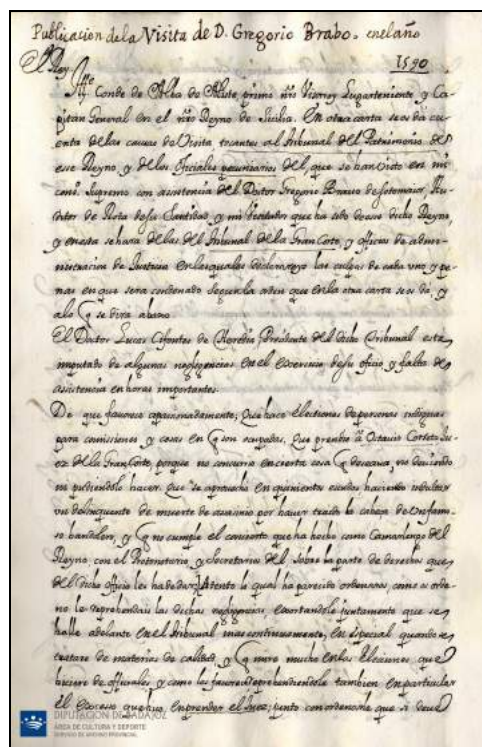 Publicacion de la Visita de D. Gregorio Brabo. en el año
1590
El Rey
Ill.e Conde de Alba de Aliste, primo nro Visorrey Lugarteniente y Ca-
pitan General en el nro Reyno de Sicilia. En otra carta se os da cu-
enta de las causas de Visita, tocantes al Tribunal del Patrimonio de
esse Reyno, y de los Oficiales pecuniarios del, que se han visto en mi
cons.o Supremo con assistencia del Doctor Gregorio Brauo de Sotomaior, Au-
ditor de Rota de su Santidad, y mi Visitador que ha sido de esse dicho Reyno,
y en esta se hara de las del Tribunal de la Gran Corte, y officios de admi-
nistracion de Justicia en las quales declaro yo las culpas de cada uno y pe-
nas en que sera condenado segun la orden que en la otra carta se os da, y
a lo q se dira abaxo.
El Doctor Lucas Cifontes de Heredia Presidente del dicho Tribunal esta
imputado de algunas negligencias en el exercicio de su oficio, y falta de
asistencia en horas importantes.
De que favorece apasionadamente; Que hace Electiones de personas indignas
para comissiones y cosas en q son ocupadas, Que prendio a Octavio Corseto Ju-
ez de la Gran Corte, porque no concurria en cierta cosa q deseaua, no deuiendo
ni pudiendolo hacer. Que se aprouechó en quinientos escudos, haciendo
un delinquente de muerte de assasinio por hauer traido la cabeça de un famo-
so bandolero, y q no cumple el concierto que ha hecho como Camarlengo del
Reyno, con el Protonotario, y Secretarios del sobre la parte de derechos que
del dicho officio les ha de dar; Atento lo qual ha parecido ordenaros, como os orde-
no le reprehendais las dichas negligencias exortandole juntamente que se
halle adelante en el Tribunal mas continuamente, en especial quando se
tratare de materias de calidad, y q mire mucho en las Elecciones que
hiciere de officiales y como les fauorece reprehendiendole tambien en particular
el excesso que huuo en prender el Juez; junto con ordenarle que si deue
DIPUTACIÓN DE BADAJOZ
ÁREA DE CULTURA Y DEPORTE
SERVICIO DE ARCHIVO PROVINCIAL